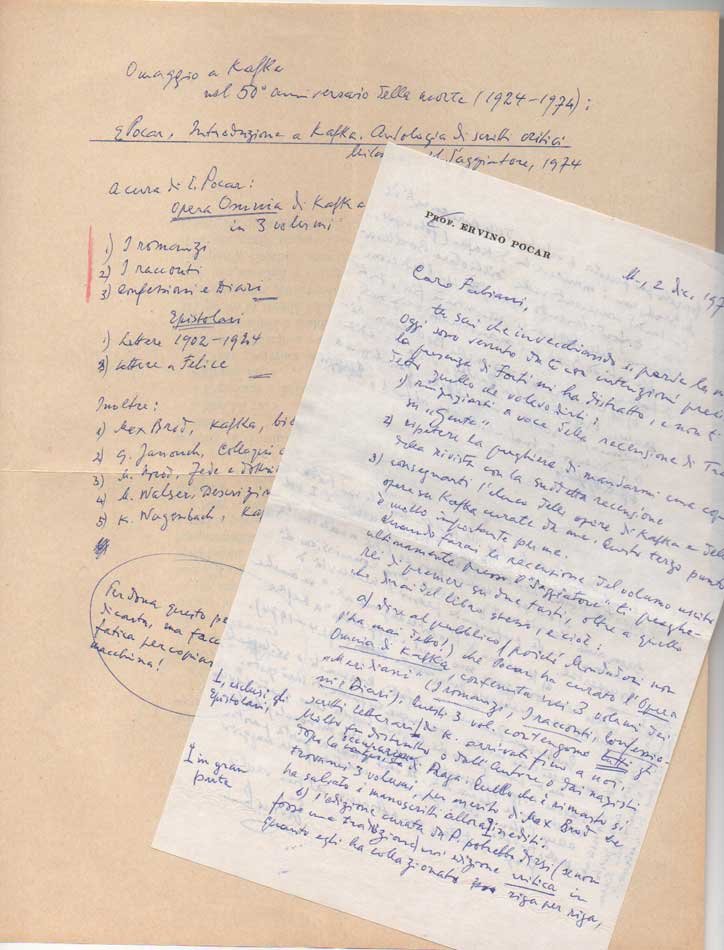 Omaggio a Kafka
nel 50° anniversario della morte (1924-1974):
E. Pocar, Introduzione a Kafka. Antologia di scritti critici
Il Saggiatore, 1974
A cura di E. Pocar:
Opera Omnia di Kafka
in 3 volumi
1) I romanzi
2) I racconti
3) Confessioni e Diari
Epistolari
1) Lettere 1902-1924
2) Lettere a Felice
Inoltre:
1) Max Brod, Kafka,
2) G. Janouch, Colloqui
3) M. Brod, Fede e
4) M. Walser, Descrizion
5) K. Wagenbach, Kaf
Perdona questo pe
di carta, ma facc
fatica per copiar
macchina!
PROF. ERVINO POCAR
M., 2 dic. 197
Caro Fabiani,
tu sai che invecchiando si perde la
Oggi sono venuto da te con intenzioni prec
la presenza di Forti mi ha distratto, e non t
detto quello che volevo dirti:
1) ringraziarti a voce della recensione di
su "Gente".
2) ripetere la preghiera di mandarmi una cop
della rivista con la suddetta recensione
3) consegnarti l'elenco delle opere di Kafka e
opere su Kafka curate da me. Questo terzo punto
è molto importante per me.
Quando farai la recensione del volume uscito
ultimamente presso "Il Saggiatore" ti preghe-
rei di premere su due tasti, oltre a quello
che dirai del libro stesso, e cioè:
a) dire al pubblico (poiché Mondadori non
l'ha mai detto!) che Pocar ha curato l'Opera
Omnia di Kafka, contenuta nei 3 volumi dei
"Meridiani" (I romanzi, I racconti, Confessio-
ni e Diari). Questi 3 voll. contengono tutti gli
scritti letterari di K. arrivati fino a noi.
Molto fu distrutto o dall'Autore o dai nazisti
dopo la occupazione Praga. Quello che è rimasto si
trova nei 3 volumi, per merito di Max Brod che
ha salvato i manoscritti allora inediti.
I, esclusi gli
Epistolari,
I in gran
parte
b) l'edizione curata da P. potrebbe dirsi (se non
fosse una traduzione) una edizione critica in
quanto egli ha collazionato riga per riga,